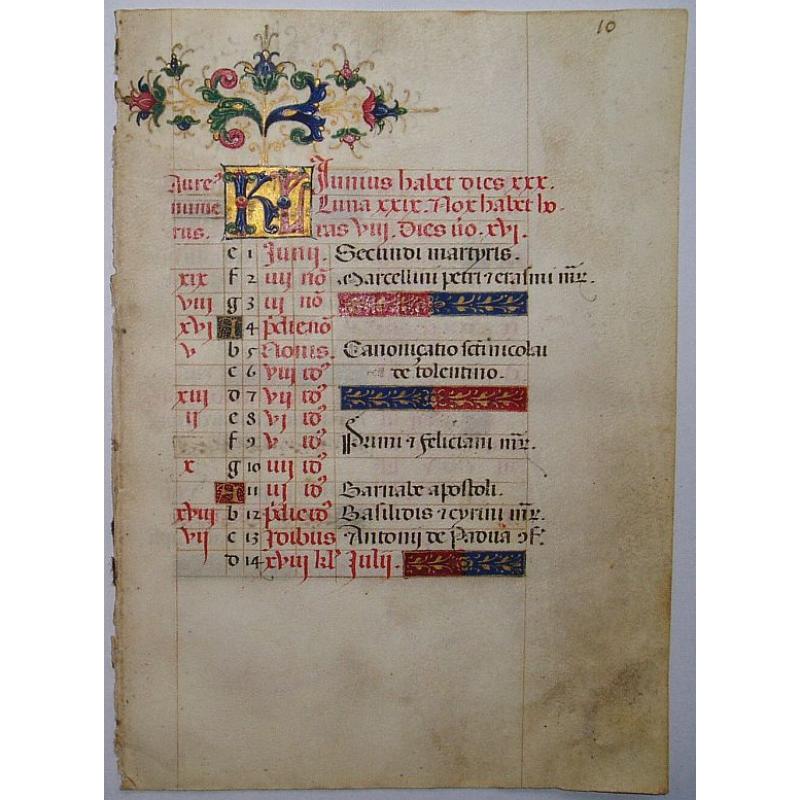 10
Aureꝰ KL Iunius habet dies xxx.
nume Luna xxix. Nox habet ho-
rus. ras viij. Dies uo. xvj.
e 1 Junij. Secundi martyris.
xix f 2 iiij nōꝰ Marcellini petri ⁊ erasmi mr̄.
viij g 3 iij nōꝰ
xvj A 4 pͥdie nōꝰ
v b 5 Nonis. Canonicatio scti nicolai
c 6 viij idꝰ de tolentino.
xiij d 7 vij idꝰ
ij e 8 vj idꝰ
f 9 v idꝰ Primi ⁊ feliciani mr̄.
x g 10 iiij idꝰ
A 11 iij idꝰ Barnabe apostoli.
xviij b 12 pͥdie idꝰ Basilidis ⁊ cyrini mr̄.
vij c 13 Idibus Antonij de Padua ↄf.
d 14 xviij kl Julij.